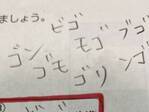 ましょう。
ビゴ
ブゴ
モゴ
ゴン
ゴモ
ゴリ
ンゴ